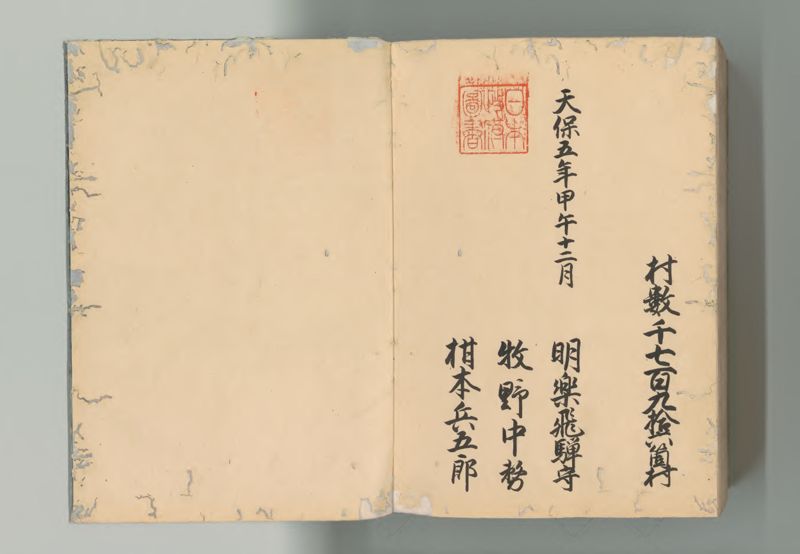 村數千七百九拾八箇村
天保五年甲午十二月
明樂飛驒守
牧野中務
柑本兵五郎
日本
政府
圖書